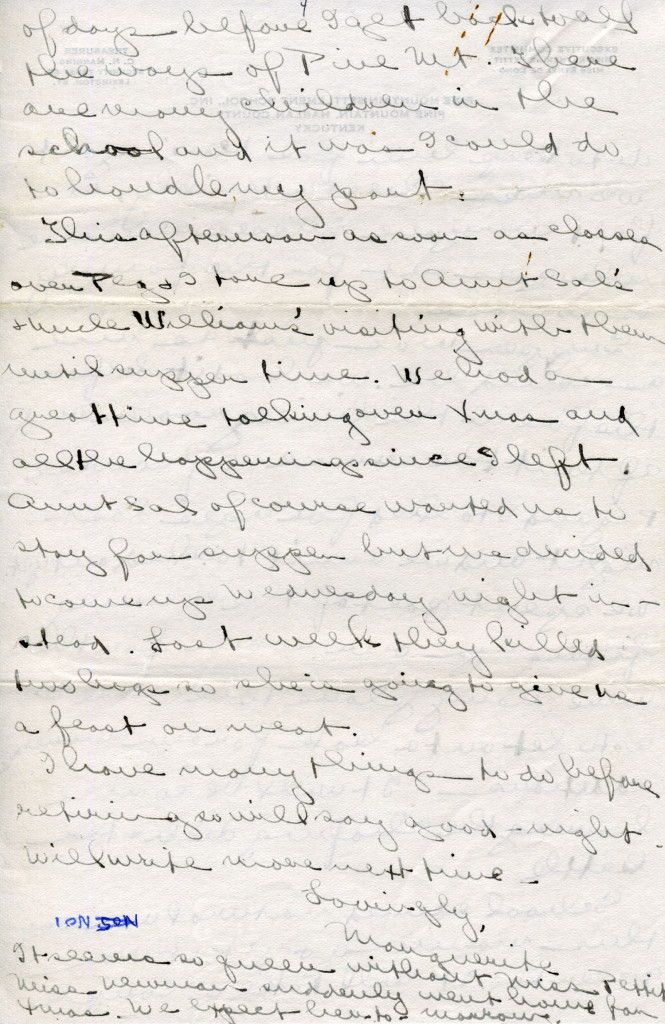 of days before I get back to all
the ways of Pine Mt. There
are many children in the
school and it was I could do
to handle my part.
This afternoon as soon as classes
over Peg & I tore up to Aunt Sal's
& Uncle William's visiting with them
until supper time. We had a
great time talking over Xmas and
all the happenings since I left.
Aunt Sal of course wanted us to
stay for supper but we decided
to come up Wednesday night in-
stead. Last week they killed
two hogs so she is going to give us
a feast on meat.
I have many things to do before
retiring so will say good-night.
Will write more next time -
Lovingly,
Marguerite
It seems so queer without Miss Pettit
Miss Newman suddenly went home for
Xmas. We expect her to-morrow.